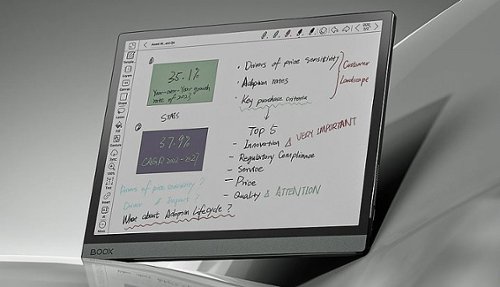 35.1%
Year-over-Year growth
rate of 2023
STATS
37.9%
CAGR 2022-2027
• Drivers of price sensitivity
• Adoption rates
• Key purchase criteria
Customer
Landscape
TOP 5
– Innovation Δ VERY IMPORTANT
– Regulatory Compliance
– Service
– Price
– Quality Δ ATTENTION
Drivers of price sensitivity ?
Driver & Import :
What about Adoption Lifecycle ?
BOOX